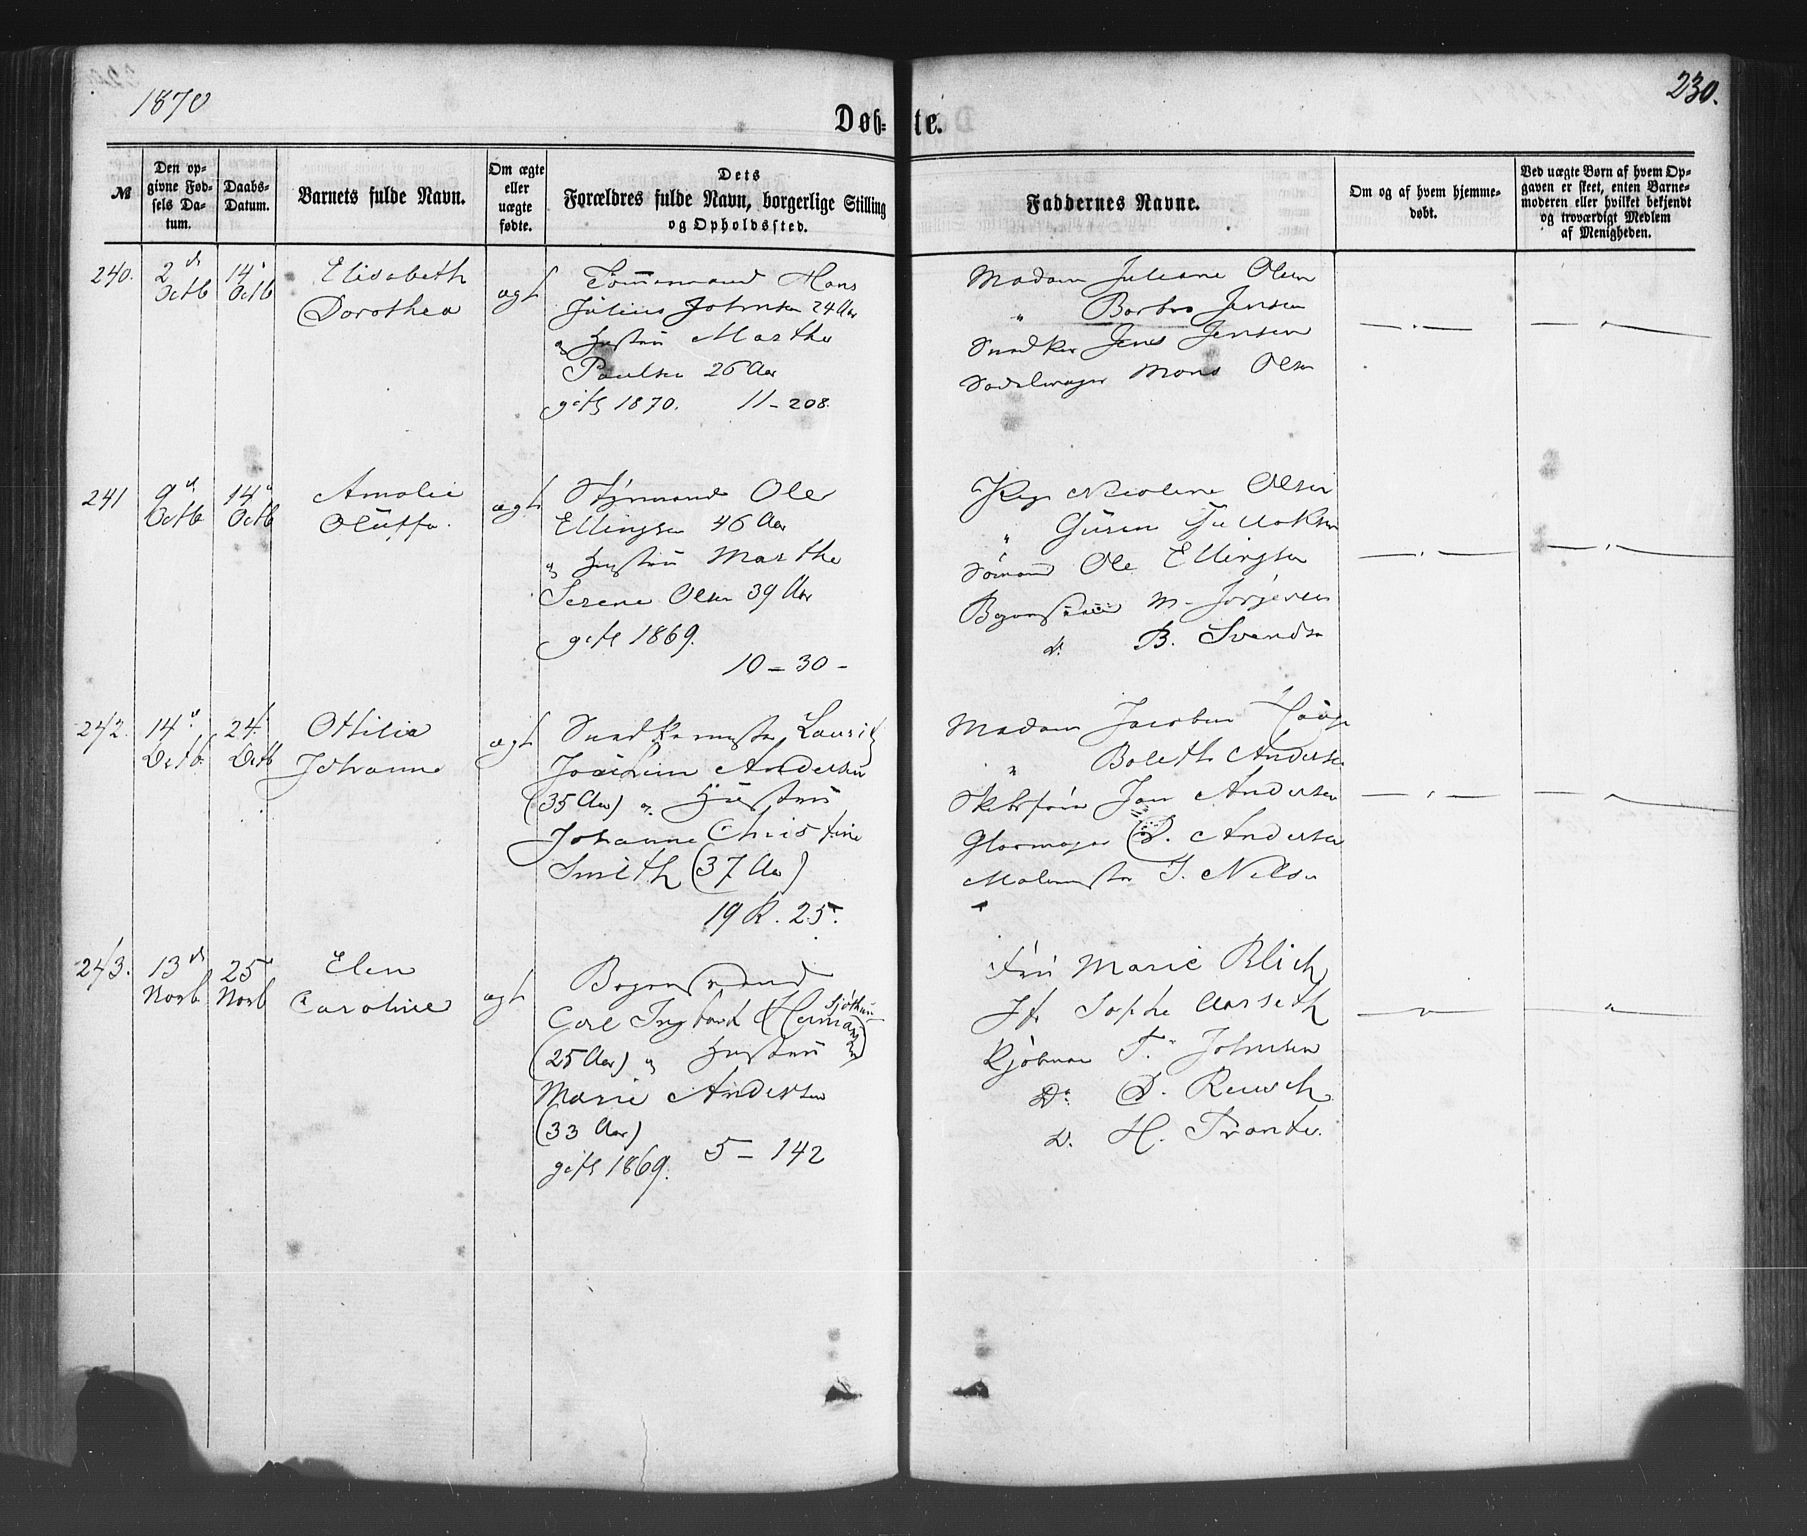 1870
230.
Døb-te.
№
Den opgivne Fødsels Datum.
Daabs-Datum.
Barnets fulde Navn.
Om ægte eller uægte fødte.
Dets Forældres fulde Navn, borgerlige Stilling og Opholdssted.
Faddernes Navne.
Om og af hvem hjemmedøbt.
Ved uægte Børn af hvem Opgaven er skeet, enten Barnemoderen eller hvilket bekjendt og troværdigt Medlem af Menigheden.
240.
2d Octb
14 Octb
Elisabeth
Dorothea
ægt
Tømmermand Hans
Julius Johnsen 24 Aar
og Hustru Marthe
Paulsen 26 Aar
gift 1870. 11-208.
Madam Juliane Olsen
" Barbro Jensen
Snedker Jens Jensen
Sadelmager Mons Olsen
241
9d Octb
14 Octb
Amalie
Oluffa.
ægt
Styrmand Ole
Ellingsen 46 Aar
og Hustru Marthe
Serene Olsen 39 Aar
gift 1869.
10-30-
Pige Nicoline Olsen
" Guren
Sømand Ole Ellingsen
M. Jørgensen
do. B. Svendsen
242.
14d Octb
24. Octb
Othilie
Johanne
ægt
Snedkermester Lauritz
Joachim Andersen
(35 Aar) og Hustru
Johanne Christine
Smith (37 Aar)
19 R. 25.
Madam Jacobine
" Boleth Andersen
Skibsfører Jan Andersen
Glarmager D. Andersen
Malermester J. Nilsen
"
243.
13d Novb
25 Novb
Elen
Caroline
ægt
Carl Ingbart Hermansen
(25 Aar) og Hustru
Marie Andersen
(33 Aar)
gift 1869. 5-142
Fru Marie Blich
Jf. Sophie Aarseth
Kjøbmand T. Johnsen
Do. D. Reusch
do. H. Tronte.